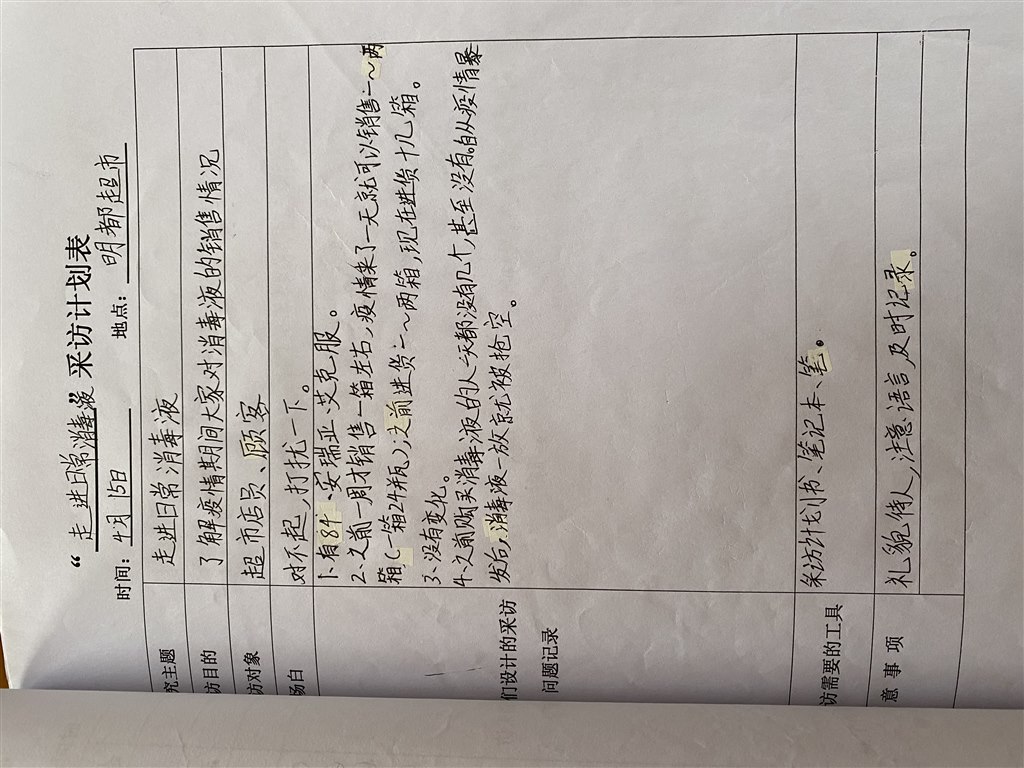 “走进日常消毒液”采访计划表
时间：4月15日 地点：明都超市
究主题 走进日常消毒液
访目的 了解疫情期间大家对消毒液的销售情况
访对象 超市店员、顾客
场白 对不起，打扰一下。
1、有84、安瑞亚、艾克服。
2、之前一周才销售一箱左右，疫情来了一天就可以销售一～两
箱（一箱24瓶）；之前进货一～两箱，现在进货十几箱。
3、没有变化。
4、之前购买消毒液的人一天都没有几个，甚至没有。自从疫情暴
发后，消毒液一放就被抢空。
们设计的采访
问题记录
访需要的工具 采访计划书、笔记本、笔。
意事项 礼貌待人，注意语言，及时记录。